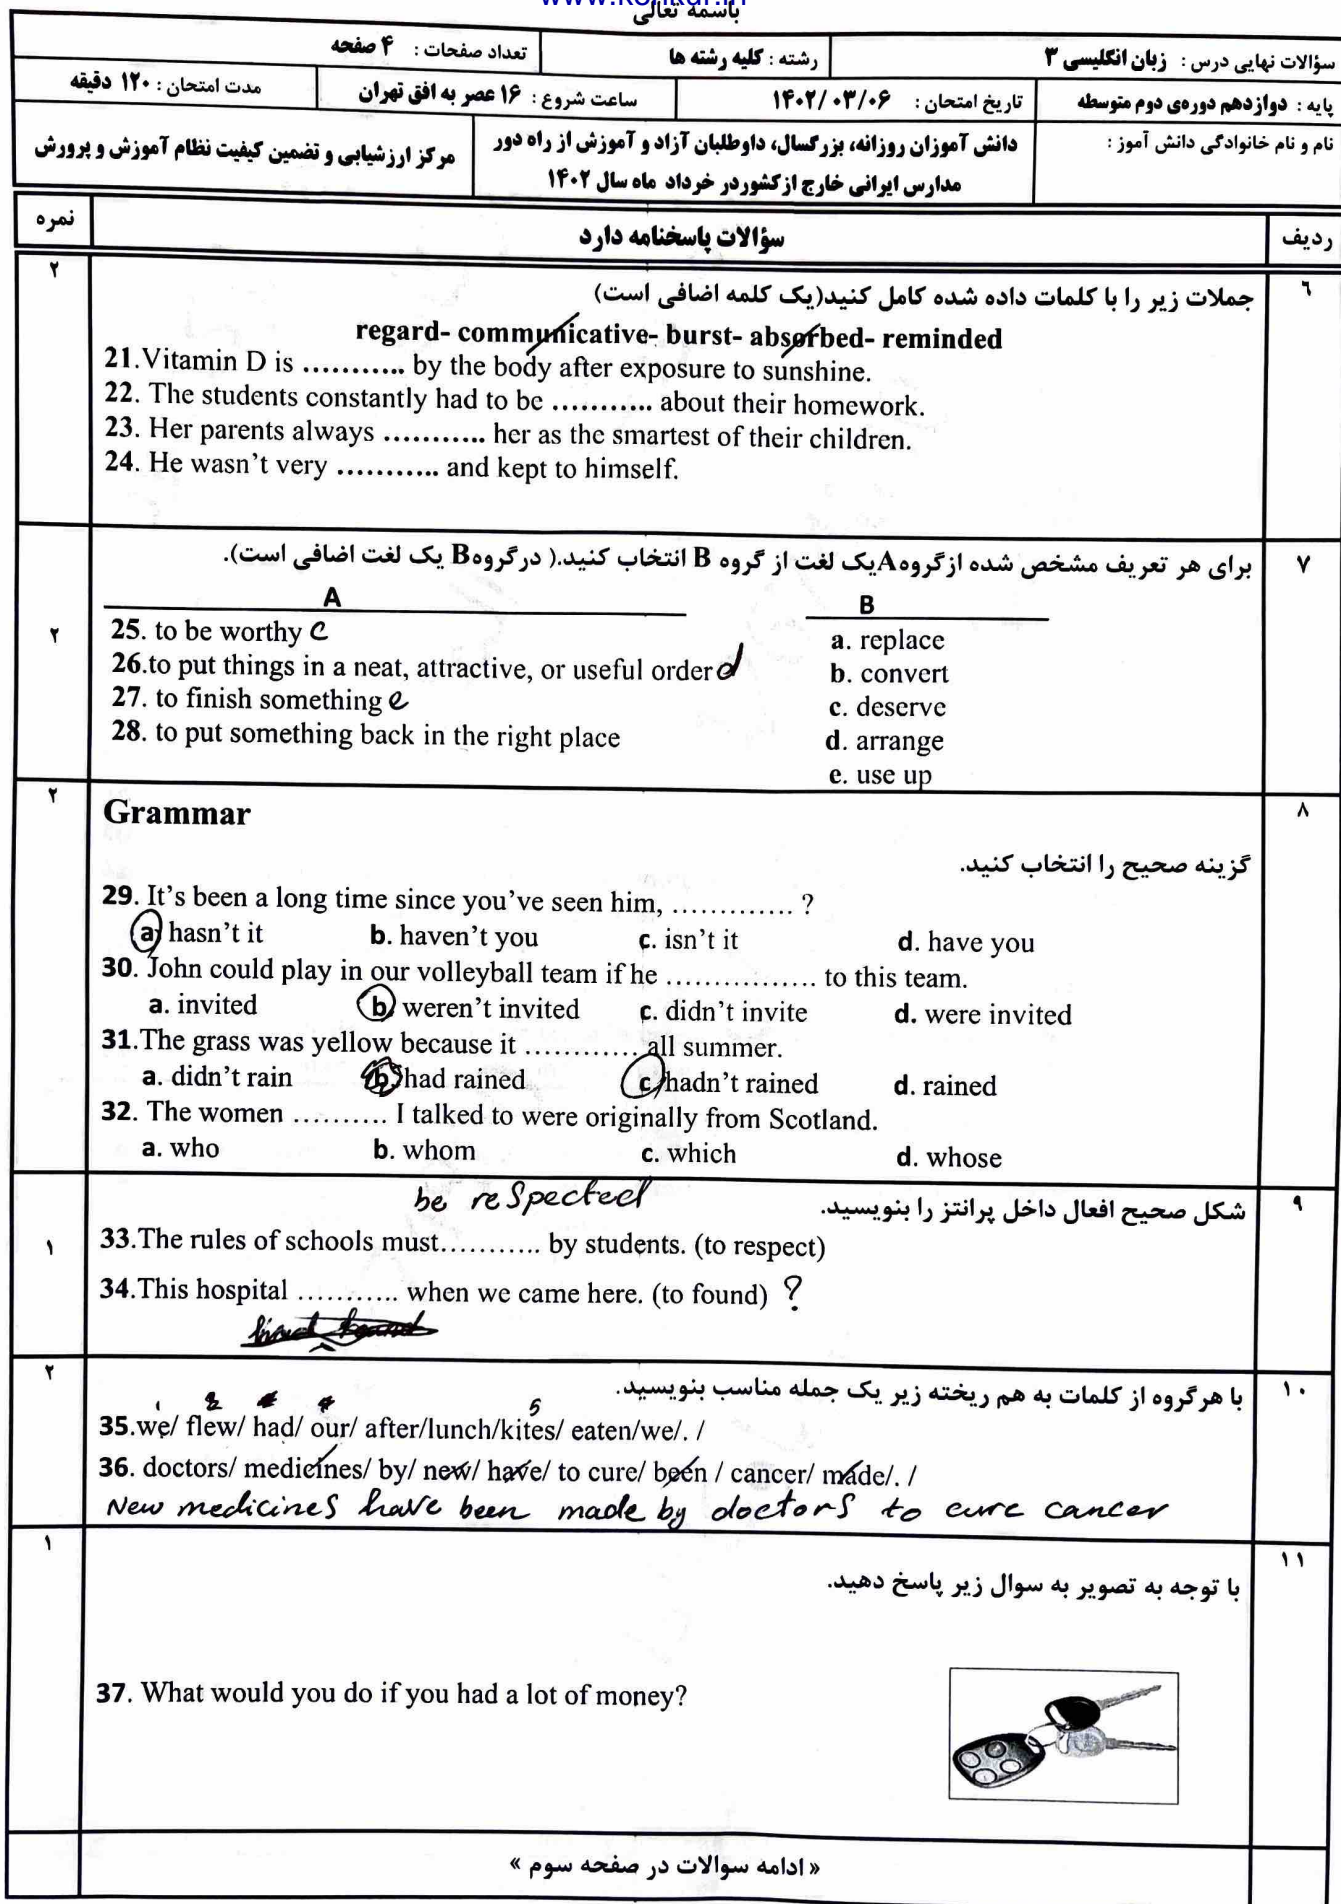 باسمه تعالی
سؤالات نهایی درس : زبان انگلیسی ۳ رشته : کلیه رشته ها تعداد صفحات : ۴ صفحه
پایه : دوازدهم دوره‌ی دوم متوسطه تاریخ امتحان : ۱۴۰۲/۰۳/۰۶ ساعت شروع : ۱۶ عصر به افق تهران مدت امتحان : ۱۲۰ دقیقه
نام و نام خانوادگی دانش آموز : دانش آموزان روزانه، بزرگسال، داوطلبان آزاد و آموزش از راه دور مرکز ارزشیابی و تضمین کیفیت نظام آموزش و پرورش
مدارس ایرانی خارج از کشور در خرداد ماه سال ۱۴۰۲
ردیف سؤالات پاسخنامه دارد نمره
۶ جملات زیر را با کلمات داده شده کامل کنید(یک کلمه اضافی است) ۲
regard- communicative- burst- absorbed- reminded
21.Vitamin D is ........... by the body after exposure to sunshine.
22. The students constantly had to be ........... about their homework.
23. Her parents always ........... her as the smartest of their children.
24. He wasn't very ........... and kept to himself.
۷ برای هر تعریف مشخص شده ازگروهAیک لغت از گروه B انتخاب کنید.( درگروهB یک لغت اضافی است). ۲
A B
25. to be worthy c a. replace
26.to put things in a neat, attractive, or useful order d b. convert
27. to finish something e c. deserve
28. to put something back in the right place d. arrange
e. use up
۸ ۲
Grammar
گزینه صحیح را انتخاب کنید.
29. It's been a long time since you've seen him, ............. ?
a) hasn't it b. haven't you c. isn't it d. have you
30. John could play in our volleyball team if he ................ to this team.
a. invited b. weren't invited c. didn't invite d. were invited
31.The grass was yellow because it ............ all summer.
a. didn't rain b. had rained c. hadn't rained d. rained
32. The women .......... I talked to were originally from Scotland.
a. who b. whom c. which d. whose
۹ شکل صحیح افعال داخل پرانتز را بنویسید. ۱
be respected
33.The rules of schools must........... by students. (to respect)
34.This hospital ........... when we came here. (to found) ?
۱۰ با هرگروه از کلمات به هم ریخته زیر یک جمله مناسب بنویسید. ۲
35.we/ flew/ had/ our/ after/lunch/kites/ eaten/we/. /
36. doctors/ medicines/ by/ new/ have/ to cure/ been / cancer/ made/. /
New medicines have been made by doctors to cure cancer
۱۱ با توجه به تصویر به سوال زیر پاسخ دهید. ۱
37. What would you do if you had a lot of money?
« ادامه سوالات در صفحه سوم »